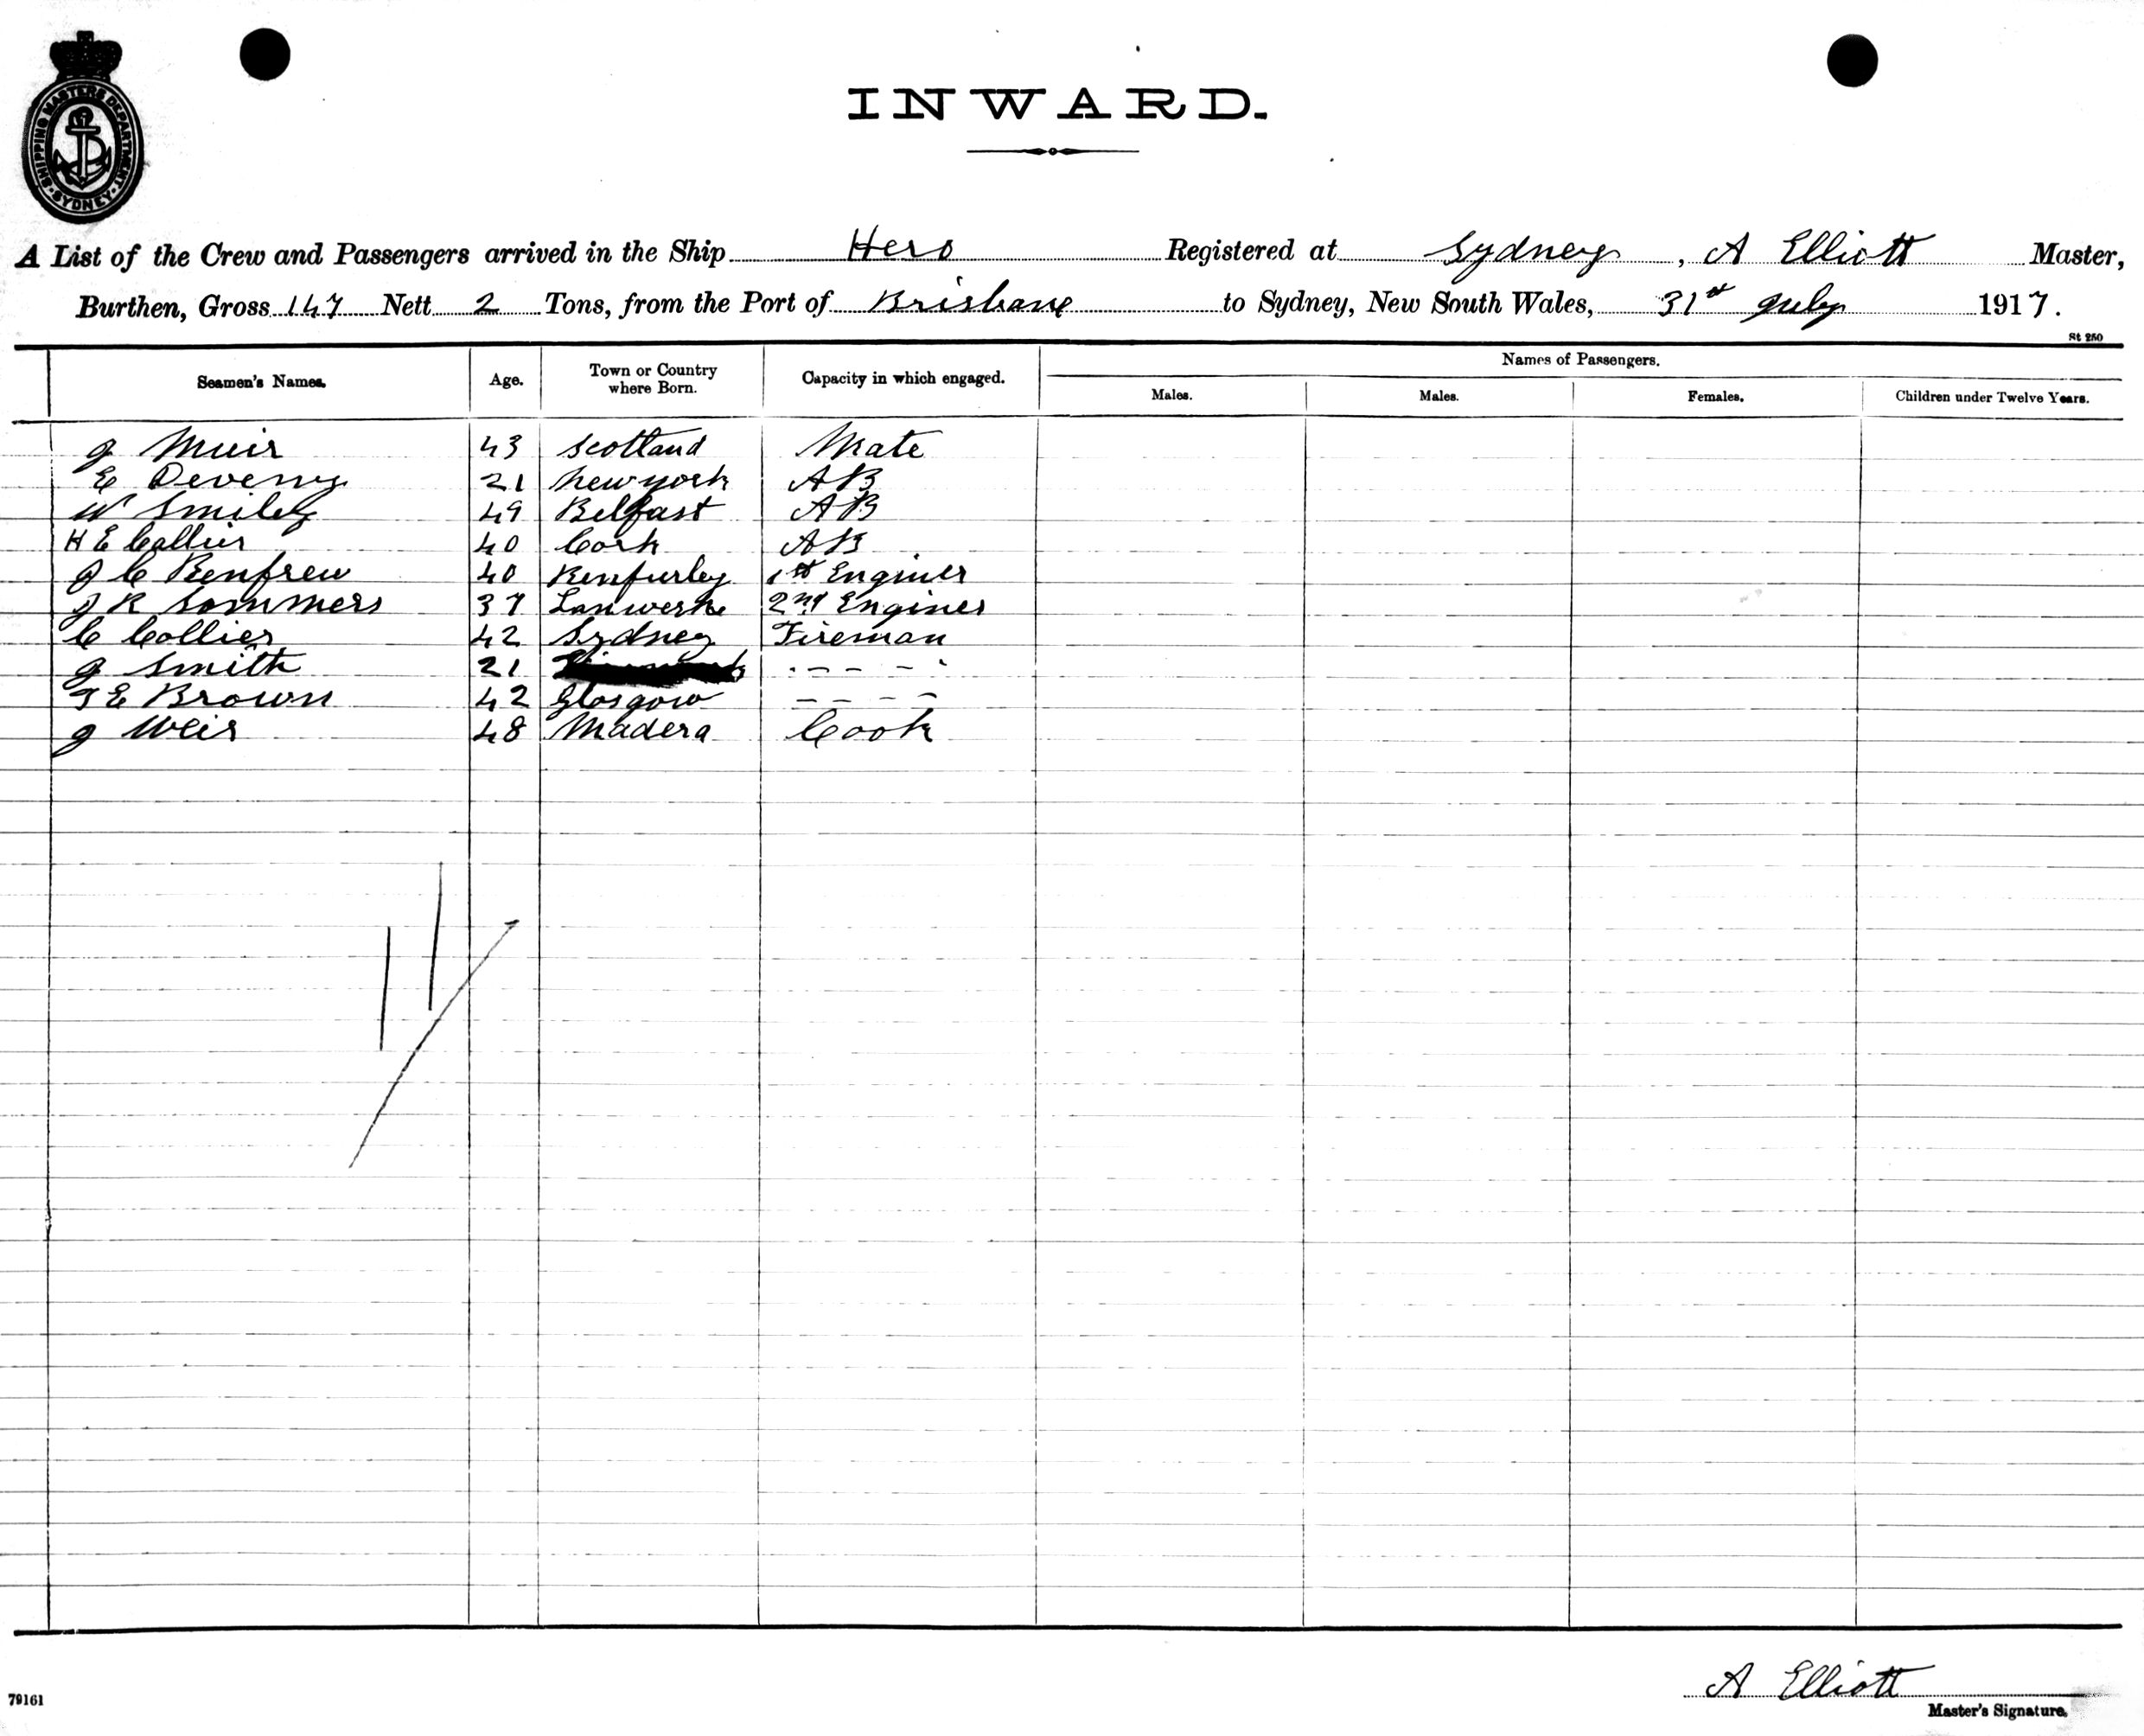 SHIPPING MASTERS DEPARTMENT · SYDNEY ·
INWARD.
A List of the Crew and Passengers arrived in the Ship Hero Registered at Sydney, A Elliott Master,
Burthen, Gross 147 Nett 2 Tons, from the Port of Brisbane to Sydney, New South Wales, 31st July 1917.
St 250
Seamen's Names. Age. Town or Country where Born. Capacity in which engaged. Names of Passengers.
Males. Males. Females. Children under Twelve Years.
J Muir 43 Scotland Mate
E Deveny 21 New york AB
W Smiley 49 Belfast AB
H E Collier 40 Cork AB
J C Renfrew 40 1st Enginer
J R Sommers 37 2nd Enginer
C Collier 42 Sydney Fireman
J Smith 21 - - - -
T E Brown 42 Glasgow - - - -
J Weir 48 Madera Cook
11
A Elliott
79161
Master's Signature.